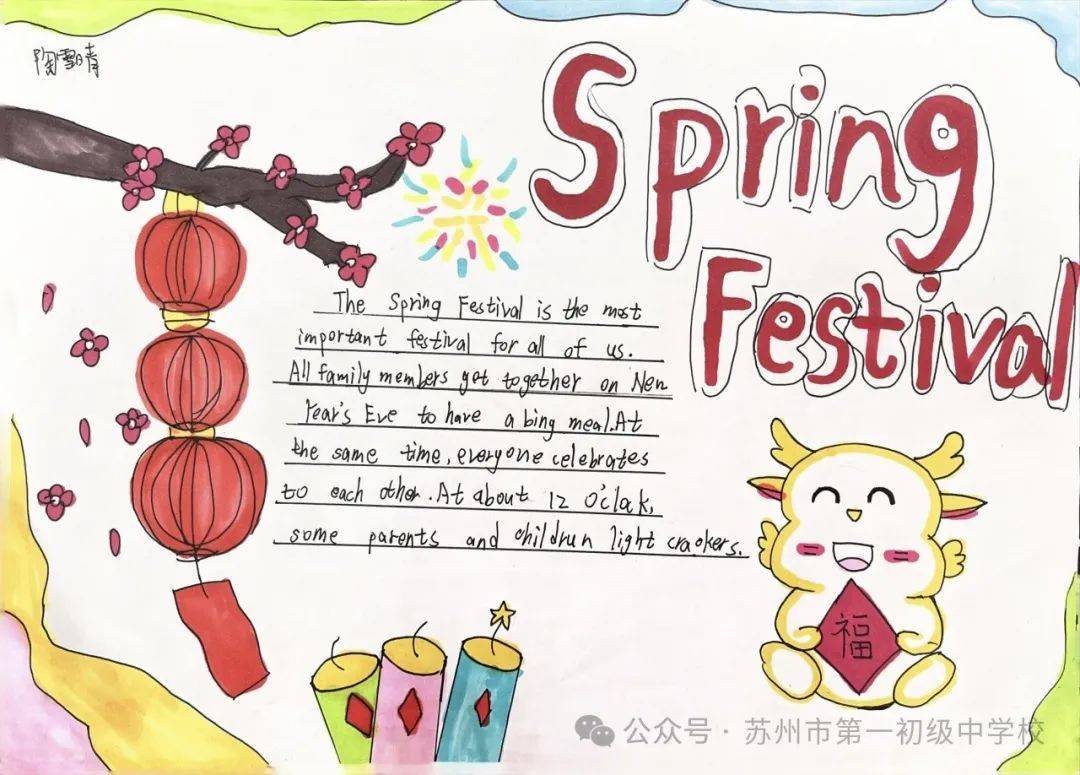 陶雪晴
Spring
Festival
The Spring Festival is the most
important festival for all of us.
All family members get together on New
Year's Eve to have a bing meal.At
the same time, everyone celebrates
to each other.At about 12 O'clak,
some parents and childrun light crackers.
福
公众号·苏州市第一初级中学校